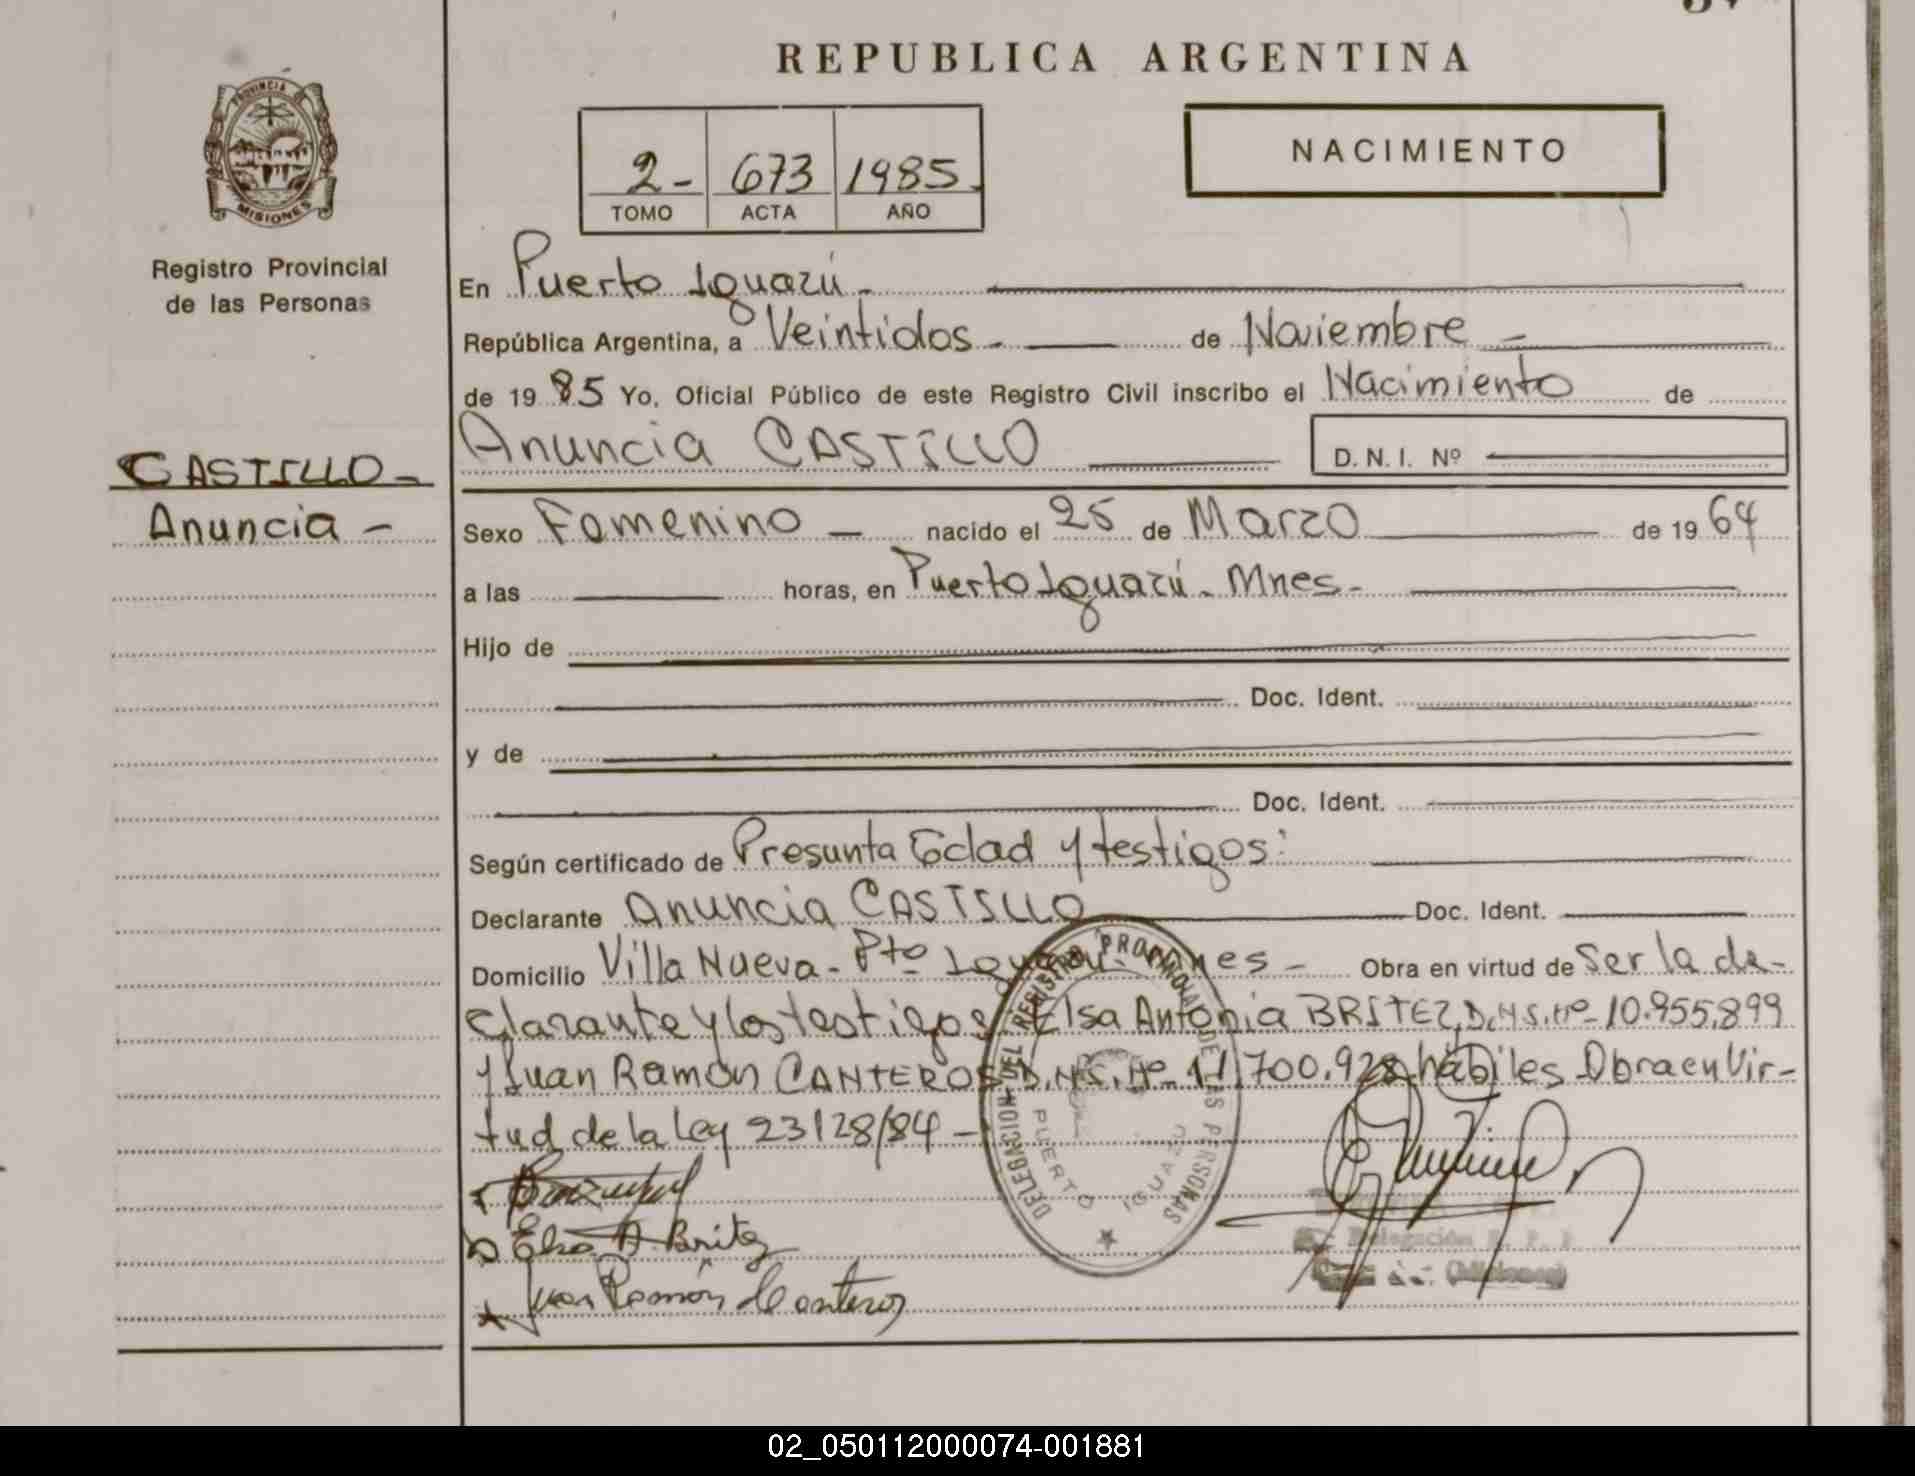 REPUBLICA ARGENTINA
PROVINCIA DE
MISIONES
Registro Provincial
de las Personas
2- 673 1985.
TOMO ACTA AÑO
NACIMIENTO
En Puerto Iguazú.-
República Argentina, a Veintidos.- de Noviembre -
de 19 85 Yo, Oficial Público de este Registro Civil inscribo el Nacimiento de
Anuncia CASTILLO D. N. I. Nº
CASTILLO-
Anuncia -
Sexo Femenino - nacido el 25 de Marzo de 19 64
a las horas, en Puerto Iguazú. Mnes.-
Hijo de
Doc. Ident.
y de
Doc. Ident.
Según certificado de Presunta Edad y testigos:
Declarante Anuncia CASTILLO Doc. Ident.
Domicilio Villa Nueva- Pto Iguazú- Mnes - Obra en virtud de Ser la de-
clarante y los testigos Elsa Antonia BRITEZ, D.N.I. Nº- 10.955.899
y Juan Ramón CANTEROS D.N.I. Nº- 11.700.928 hábiles Obra en Vir-
tud de la Ley 23128/84 -
Elsa A. Britez
Juan Ramón Canteros
DELEGACION DEL REGISTRO PROVINCIAL DE LAS PERSONAS
PUERTO IGUAZU
Delegación R. P. P.
(Misiones)
02_050112000074-001881